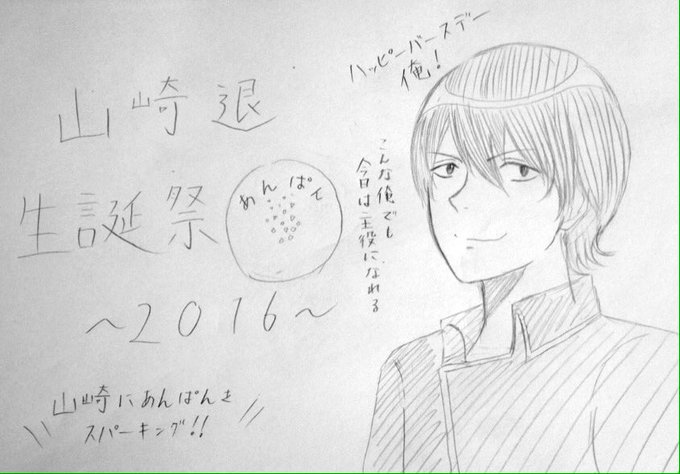 山崎退
生誕祭
あんぱん
〜2016〜
山崎にあんぱんを
スパーキング!!
ハッピーバースデー
俺!
こんな俺でも
今日は主役になれる